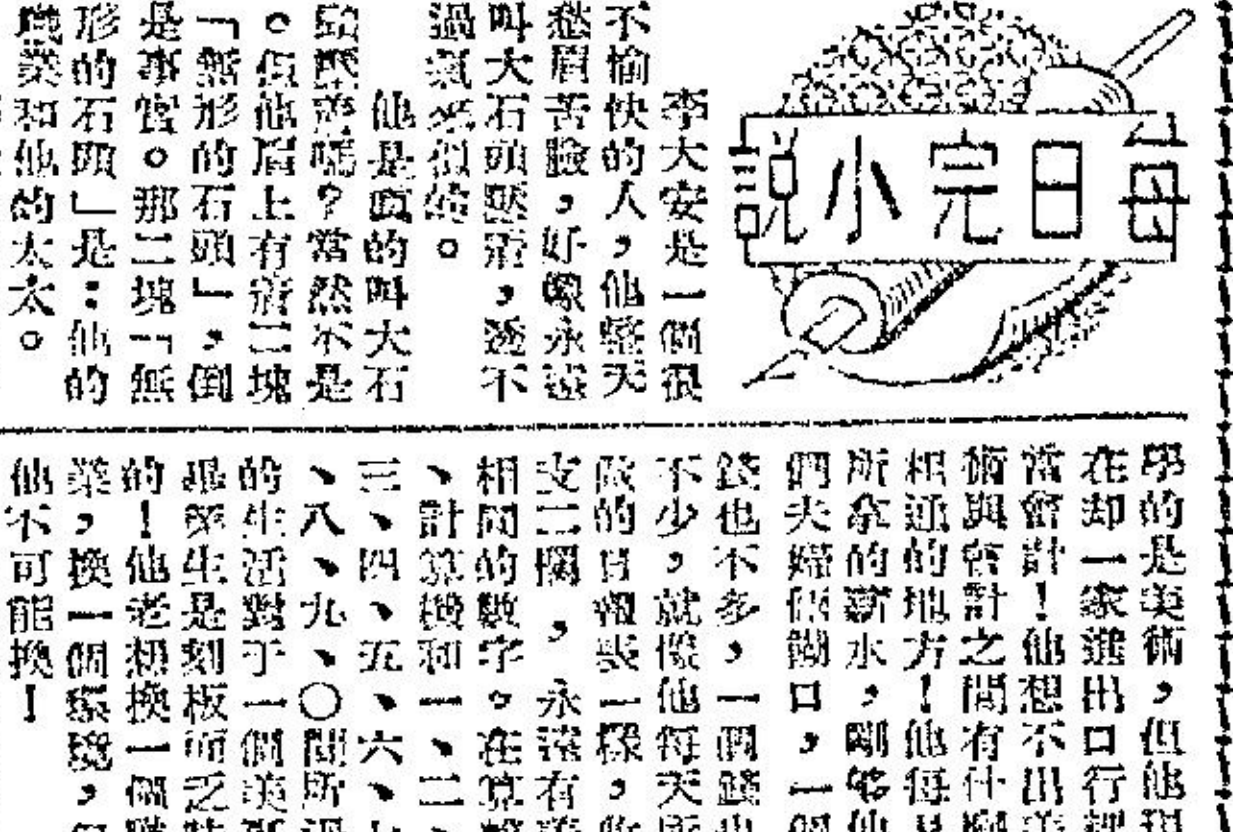 每日完小説
李大安是一個很
不愉快的人，他整天
愁眉苦臉，好像永遠
叫大石頭壓着，透不
過氣來似的。
他是眞的叫大石
頭壓着嗎？當然不是
。但他眉上有着二塊
「無形的石頭」，倒
是事實。那二塊「無
形的石頭」是：他的
職業和他的太太。
學的是美術，但他現
在却一家進出口行裡
當會計！他想不出美
術與會計之間有什麼
相通的地方！他每月
所拿的薪水，剛够他
們夫婦倆餬口，一個
錢也不多，一個錢也
不少，就像他每天所
做的日報表一樣，收
支二欄，永遠有着
相同的數字。在算盤
、計算機和一、二、
三、四、五、六、七
、八、九、〇間所過
的生活對于一個美
是來生是刻板而乏味
的！他老想換一個職
業，換一個環境，但
他不可能換！